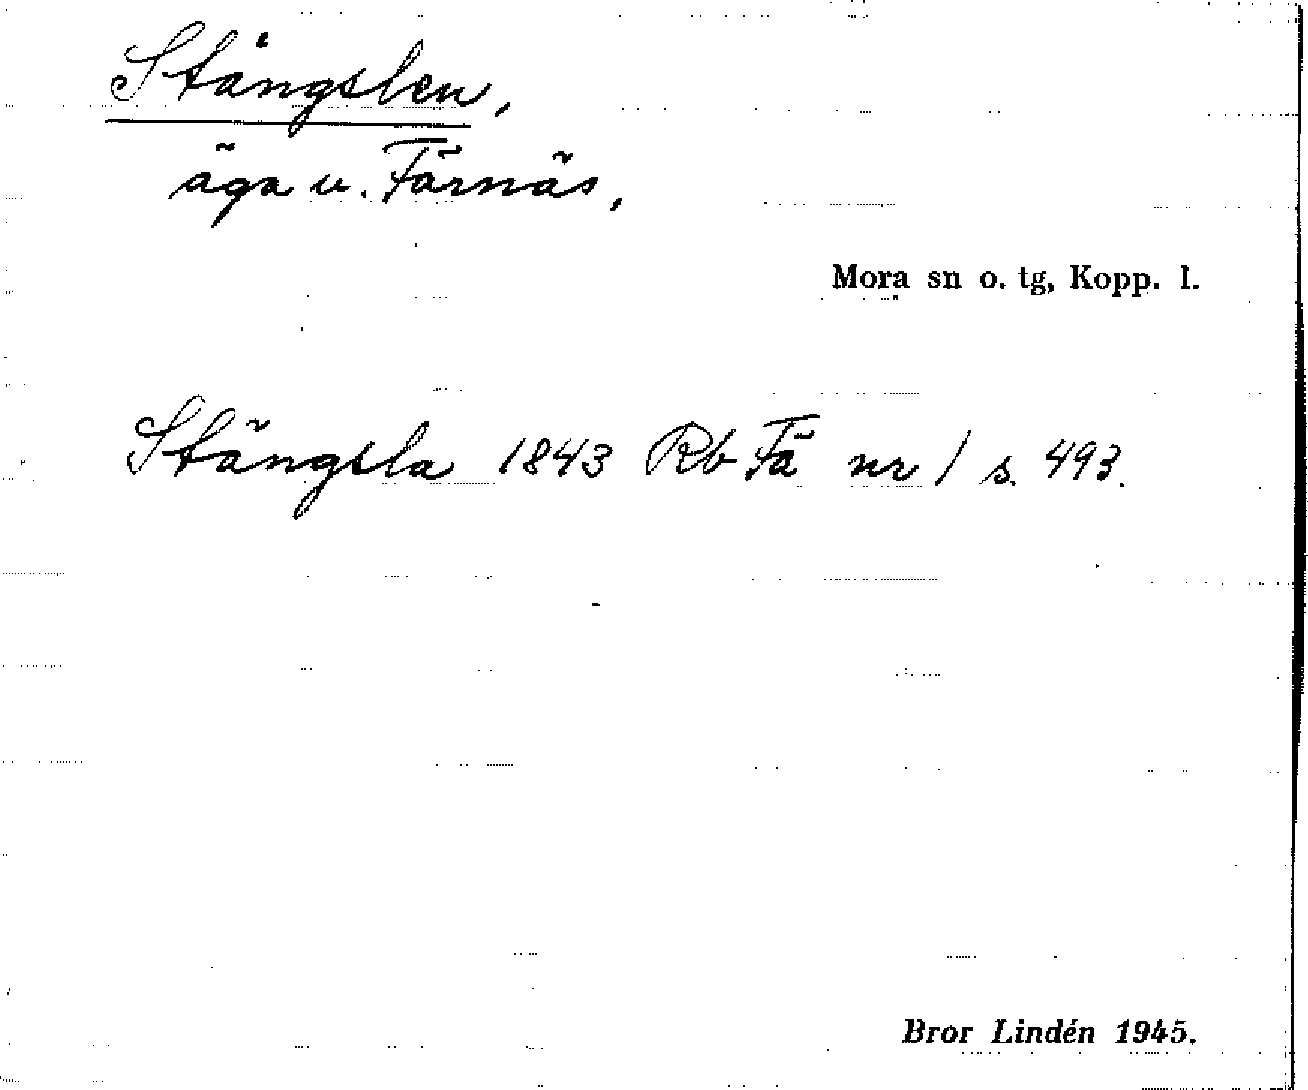 Stångslen,
äga u. Färnäs,
Mora sn o. tg, Kopp. l.
Stängsla 1843 Rb Fä nr 1 s. 493.
Bror Lindén 1945.